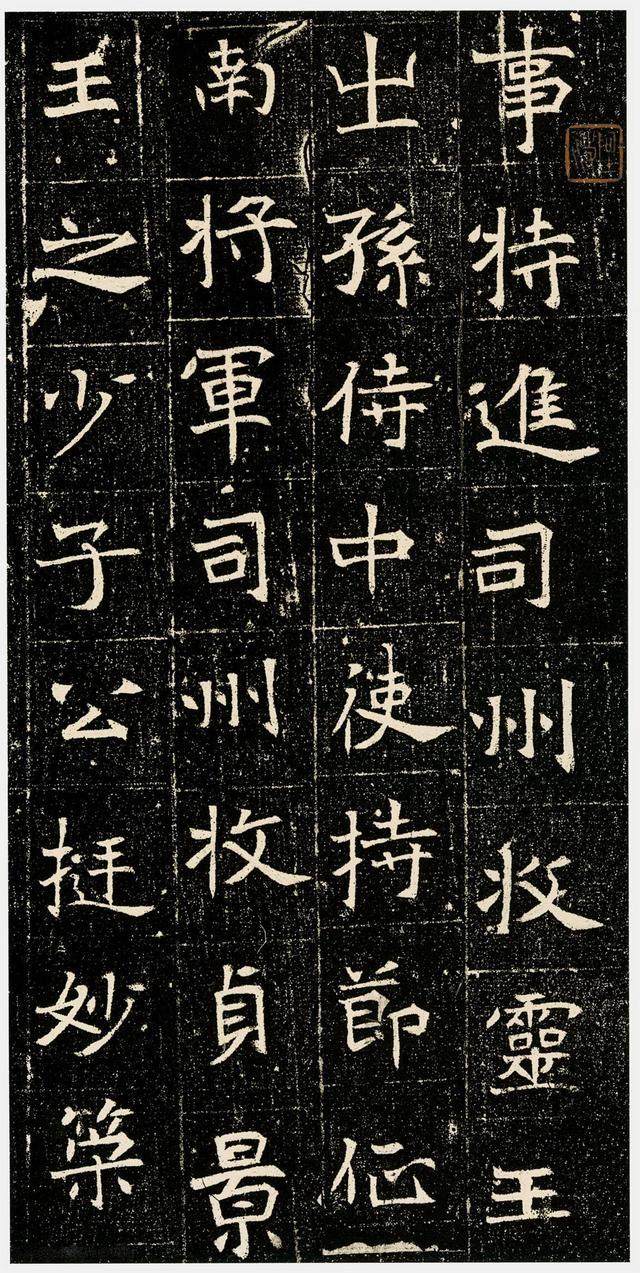 事特進司州牧靈王
之孫侍中使持節征
南將軍司州牧貞景
王之少子公挺妙策